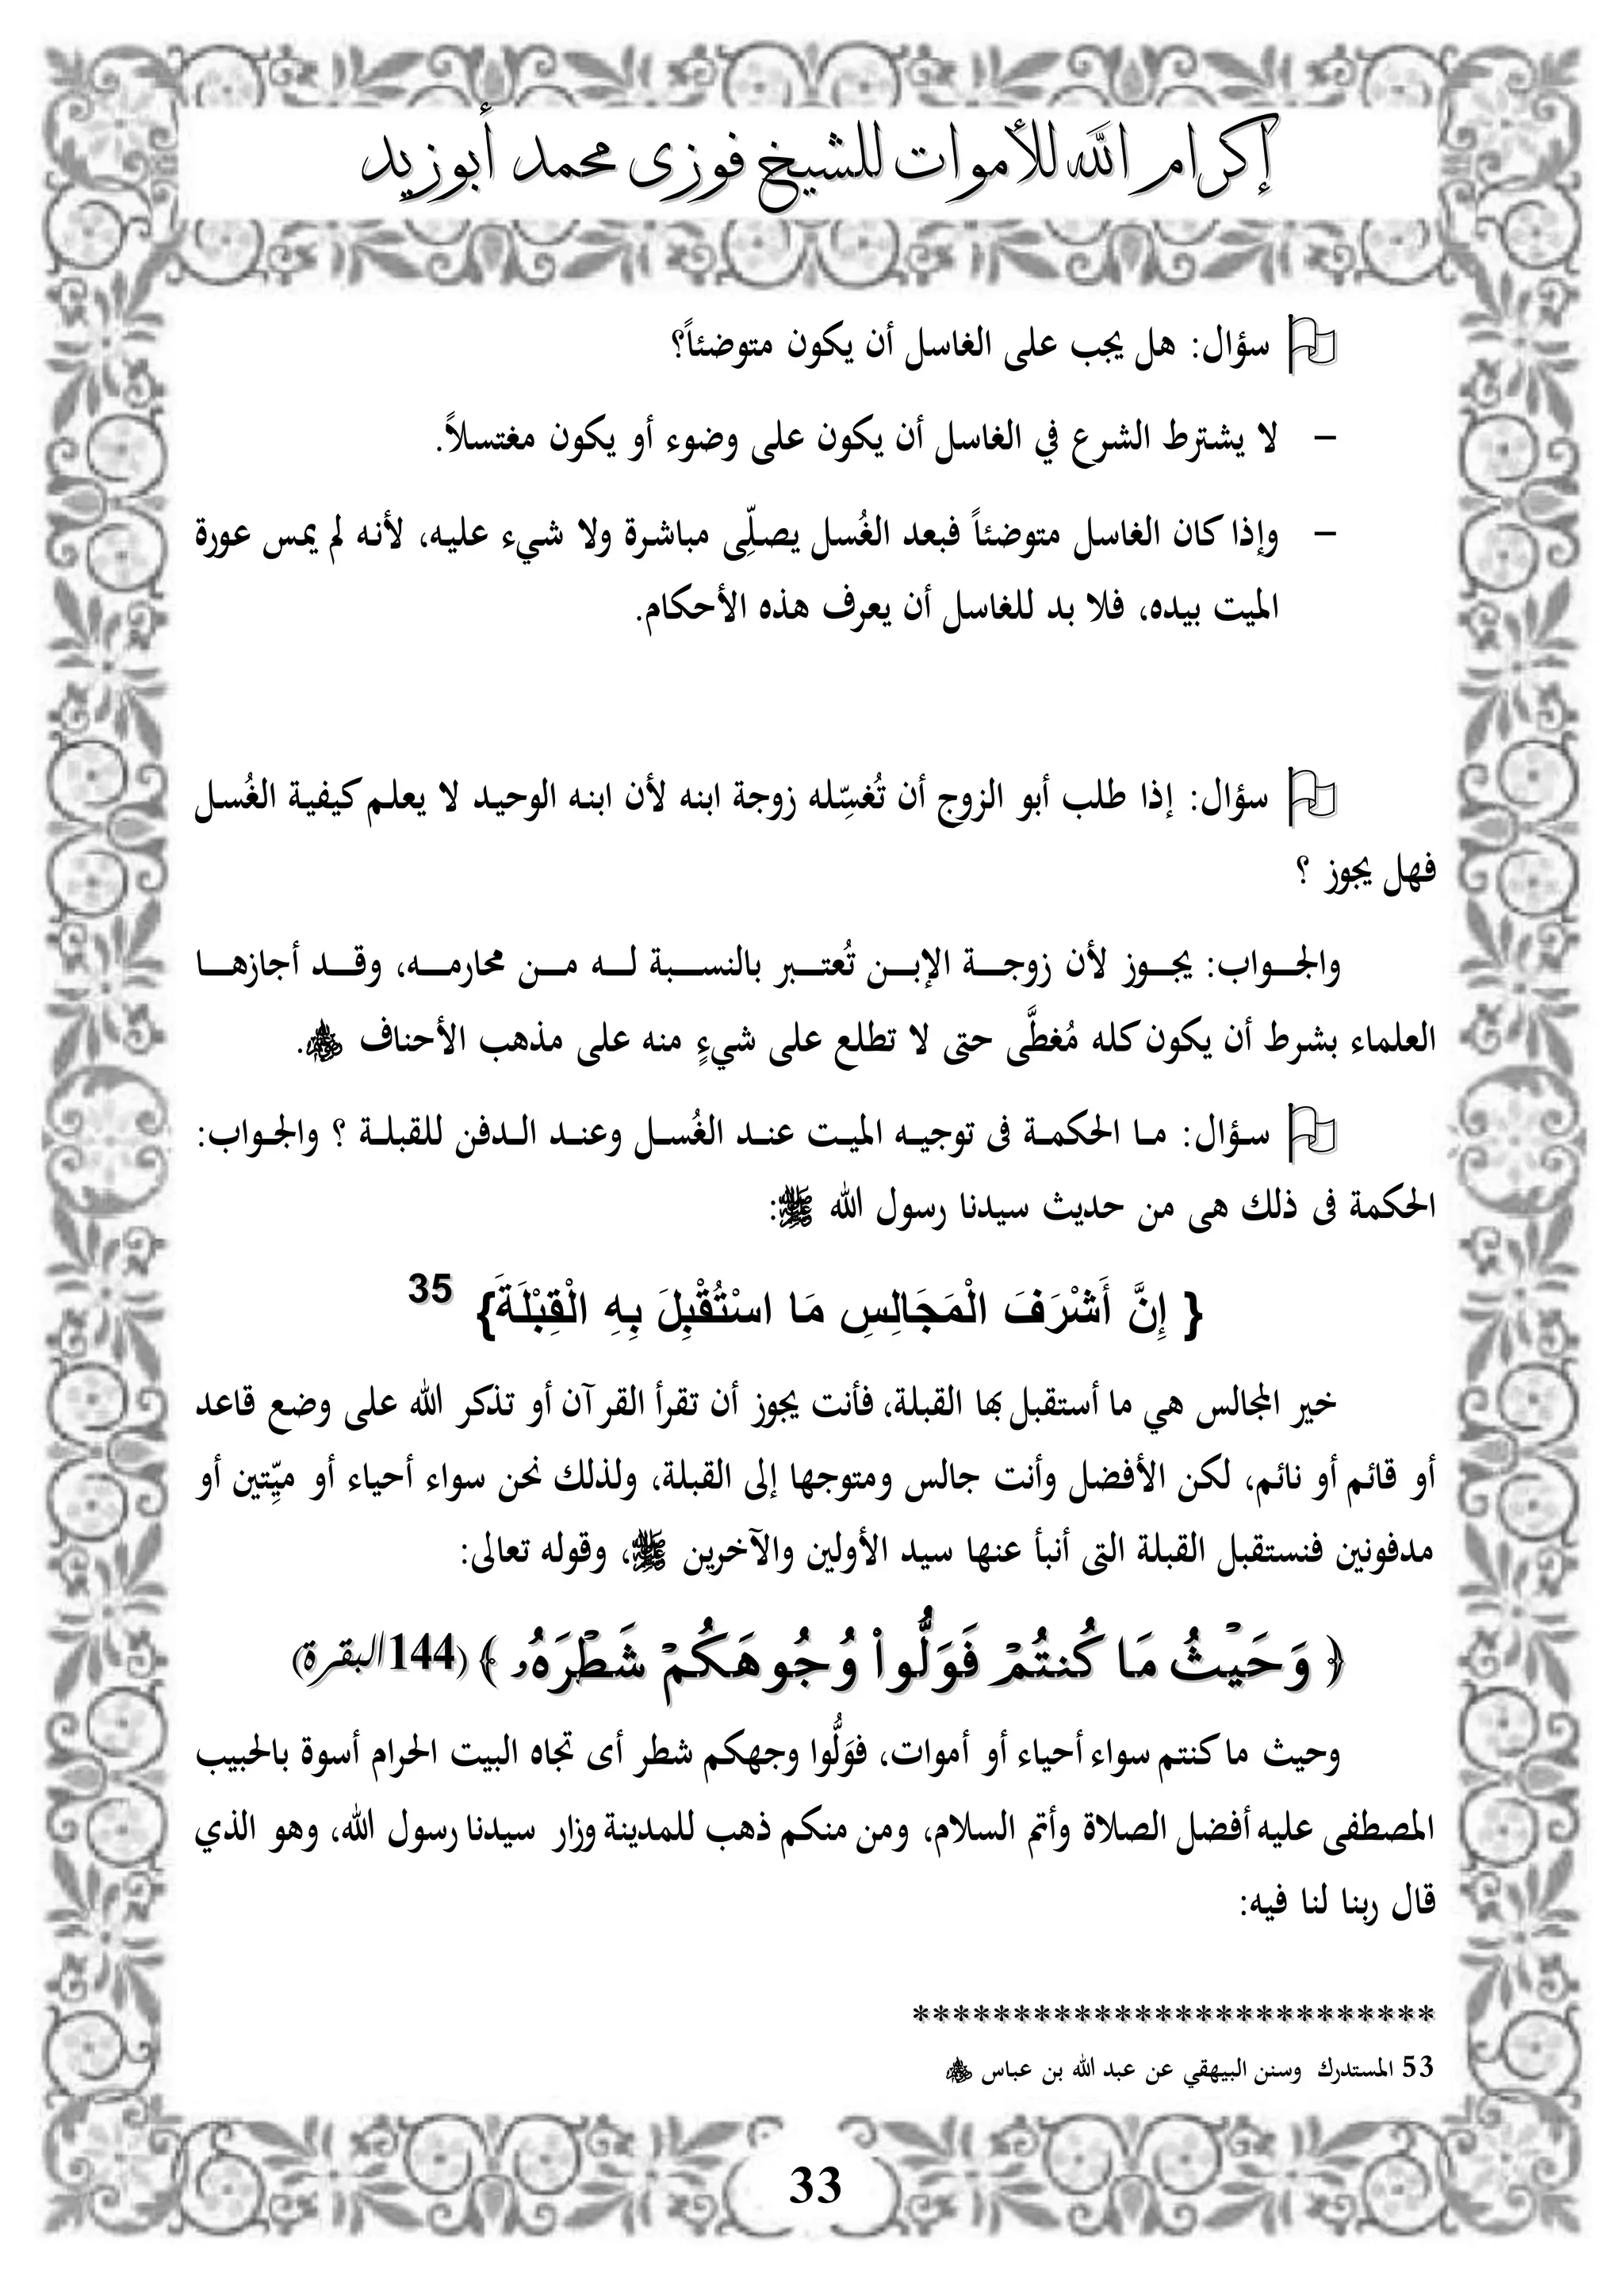 إكرام الله للأموات للشيخ فوزى محمد أبوزيد
سؤال: هل يجب على الغاسل أن يكون متوضئاً؟
- لا يشترط الشرع في الغاسل أن يكون على وضوء أو يكون مغتسلاً.
- وإذا كان الغاسل متوضئاً فبعد الغُسل يصلِّى مباشرة ولا شيء عليه، لأنه لم يمس عورة
الميت بيده، فلا بد للغاسل أن يعرف هذه الأحكام.
سؤال: إذا طلب أبو الزوج أن تُغسِّله زوجة ابنه لأن ابنه الوحيد لا يعلم كيفية الغُسل
فهل يجوز ؟
والجواب: يجوز لأن زوجة الإبن تُعتبر بالنسبة له من محارمه، وقد أجازها
العلماء بشرط أن يكون كله مُغطَّى حتى لا تطلع على شيءٍ منه على مذهب الأحناف ﵃.
سؤال: ما الحكمة فى توجيه الميت عند الغُسل وعند الدفن للقبلة ؟ والجواب:
الحكمة فى ذلك هى من حديث سيدنا رسول الله ﷺ:
{ إِنَّ أَشْرَفَ الْمَجَالِسِ مَا اسْتُقْبِلَ بِهِ الْقِبْلَةَ} 35
خير المجالس هي ما أستقبل بها القبلة، فأنت يجوز أن تقرأ القرآن أو تذكر الله على وضع قاعد
أو قائم أو نائم، لكن الأفضل وأنت جالس ومتوجها إلى القبلة، ولذلك نحن سواء أحياء أو ميِّتين أو
مدفونين فنستقبل القبلة التى أنبأ عنها سيد الأولين والآخرين ﷺ، وقوله تعالى:
﴿ وَحَيْثُ مَا كُنتُمْ فَوَلُّوا۟ وُجُوهَكُمْ شَطْرَهُۥ ﴾ (144البقرة)
وحيث ما كنتم سواء أحياء أو أموات، فوَلُّوا وجهكم شطر أى تجاه البيت الحرام أسوة بالحبيب
المصطفى عليه أفضل الصلاة وأتم السلام، ومن منكم ذهب للمدينة وزار سيدنا رسول الله، وهو الذي
قال ربنا لنا فيه:
**************************
53 المستدرك وسنن البيهقي عن عبد الله بن عباس ﵃
33